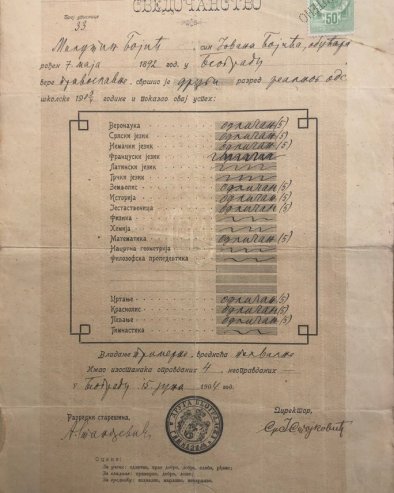 СВЕДОЧАНСТВО
Број уписнице
33
Милутин Бојић, син Јована Бојића, обућара
рођен 7. маја 1892 год. у Београду
вере православне, свршио је други разред
школске године и показао овај успех:
Веронаука одличан (5)
Српски језик одличан (5)
Немачки језик одличан (5)
Француски језик
Латински језик
Грчки језик
Земљопис одличан (5)
Историја одличан (5)
Јестаственица одличан (5)
Физика
Хемија
Математика одличан (5)
Нацртна геометрија
Филозофска пропедевтика
Цртање одличан (5)
Краснопис одличан (5)
Певање одличан (5)
Гимнастика
Владање примерно, вредноћа похвална
Имао изостанака оправданих 4, неоправданих —
У Београду, 15 јуна 1904 год.
Разредни старешина,
Директор,
Оцене:
За учење: одличан, врло добар, добар, слаб, рђав;
За владање: примерно, добро, лоше;
50